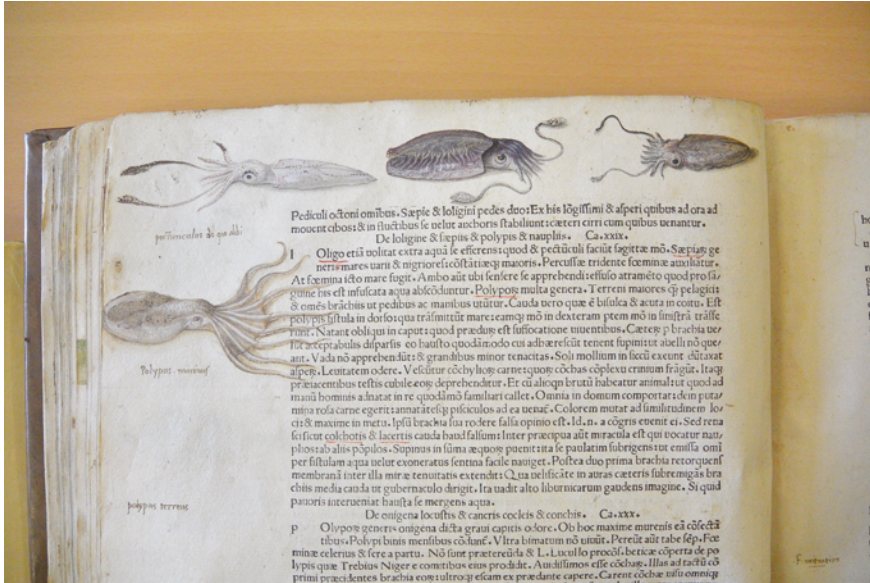 Pediculi octoni omibus. Sæpie & loligini pedes duo: Ex his lõgissimi & asperi quibus ad ora ad
mouent cibos: & in fluctibus se uelut anchoris stabiliunt: cæteri cirri cum quibus uenantur.
De loligine & sæpiis & polypis & naupliis. Ca.xxix.
l Oligo etiã uolitat extra aquã se efferens: quod & pectũculi faciũt sagittæ mõ. Sæpiaꝝ ge
neris mares uarii & nigriores: cõstãtiæqȝ maioris. Percussæ tridente fœminæ auxiliãtur.
At fœmina icto mare fugit. Ambo aũt ubi sensere se apprehendi: effuso atramẽto quod pro sã/
guine his est infuscata aqua abscõduntur. Polypoꝝ multa genera. Terreni maiores q̃ pelagici:
& omẽs brãchiis ut pedibus ac manibus utũtur. Cauda uero quæ ẽ bisulca & acuta in coitu. Est
polypis fistula in dorso: qua trãsmittũt mare: eamqȝ mõ in dexteram ptem mõ in sinistrã trãsfe
runt. Natant obliqui in caput: quod prædurȝ est suffocatione uiuentibus. Cæteꝝ p brachia ue/
lut acceptabulis disparsis eo haustu quodãmodo cui adhæresc̃ut tenent supini: ut auelli nõ que/
ant. Vada nõ apprehendũt: & grandibus minor tenacitas. Soli mollium in siccũ exeunt dũtaxat
asperȝ. Leuitatem odere. Vescũtur cõchylioꝝ carne: quoꝝ cõchas cõplexu crinium frãgũt. Itaqȝ
præiacentibus testis cubile eoꝝ deprehenditur. Et cũ alioqn brutũ habeatur animal: ut quod ad
manũ hominis adnatat in re quodãmõ familiari callet. Omnia in domum comportat: dein puta/
mina rosa carne egerit: annatãtesqȝ pisciculos ad ea uenaꞇ̃. Colorem mutat ad similitudinem lo/
ci: & maxime in metu. Ipsũ brachia sua rodere falsa opinio est. Id. n. a cõgris euenit ei. Sed rena
sci sicut colchotis & lacertis cauda haud falsum: Inter præcipua aũt miracula est qui uocatur nau/
plios: ab aliis põpilos. Supinus in sũma æquoꝝ puenit: ita se paulatim subrigens: ut emissa omi
per fistulam aqua uelut exoneratus sentina facile nauiget. Postea duo prima brachia retorquens
membranã inter illa miræ tenuitatis extendit: Qua uelificãte in auras cæteris subremigãs bra
chiis media cauda ut gubernaculo dirigit. Ita uadit alto liburnicarum gaudens imagine. Si quid
pauoris interueniat hausta se mergens aqua.
De onigena locustis & cancris cocleis & conchis. Ca.xxx.
p Olypoꝝ generis onigena dicta graui capitis odore. Ob hoc maxime murenis eã cõsectã
tibus. Polypi binis mensibus cõdunꞇ̃. Vltra bimatum nõ uiuũt. Pereũt aũt tabe sẽp. Fœ
minæ celerius & fere a partu. Nõ sunt prætereũda & L. Lucullo procõs. beticæ cõperta de po
lypis quæ Trebius Niger e comitibus eius prodidit. Auidissimos esse cõchaꝝ. Illas ad tactũ cõ
primi præcidentes brachia eoꝝ: ultroqȝ escam ex prædante capere. Carent cõchæ uisu omniqȝ
Polypus marinus
polypus terrenus